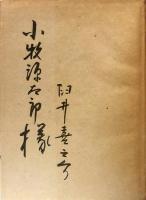 小牧源太郎様
臼井喜之介